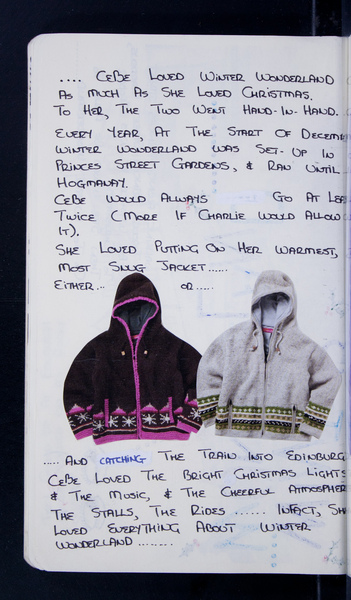 .... CEBE LOVED WINTER WONDERLAND
AS MUCH AS SHE LOVED CHRISTMAS.
TO HER, THE TWO WENT HAND-IN-HAND.
EVERY YEAR, AT THE START OF DECEM
WINTER WONDERLAND WAS SET-UP IN
PRINCES STREET GARDENS, & RAN UNTIL
HOGMANAY.
CEBE WOULD ALWAYS GO AT LEA
TWICE (MORE IF CHARLIE WOULD ALLOW
IT).
SHE LOVED PUTTING ON HER WARMEST,
MOST SNUG JACKET......
EITHER... OR.....
..... AND CATCHING THE TRAIN INTO EDINBURG
CEBE LOVED THE BRIGHT CHRISTMAS LIGHTS
& THE MUSIC, & THE CHEERFUL ATMOSPHER
THE STALLS, THE RIDES ...... INFACT, SH
LOVED EVERYTHING ABOUT WINTER
WONDERLAND ........